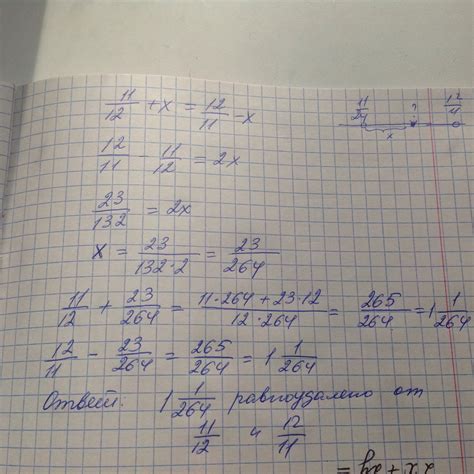 11/12 + x = 12/11 - x
12/11 - 11/12 = 2x
23/132 = 2x
x = 23/132·2 = 23/264
11/12 + 23/264 = 11·264 + 23·12/12·264 = 265/264 = 1 1/264
12/11 - 23/264 = 265/264 = 1 1/264
Ответ: 1 1/264 равноудалено от
11/12 и 12/11
?
x